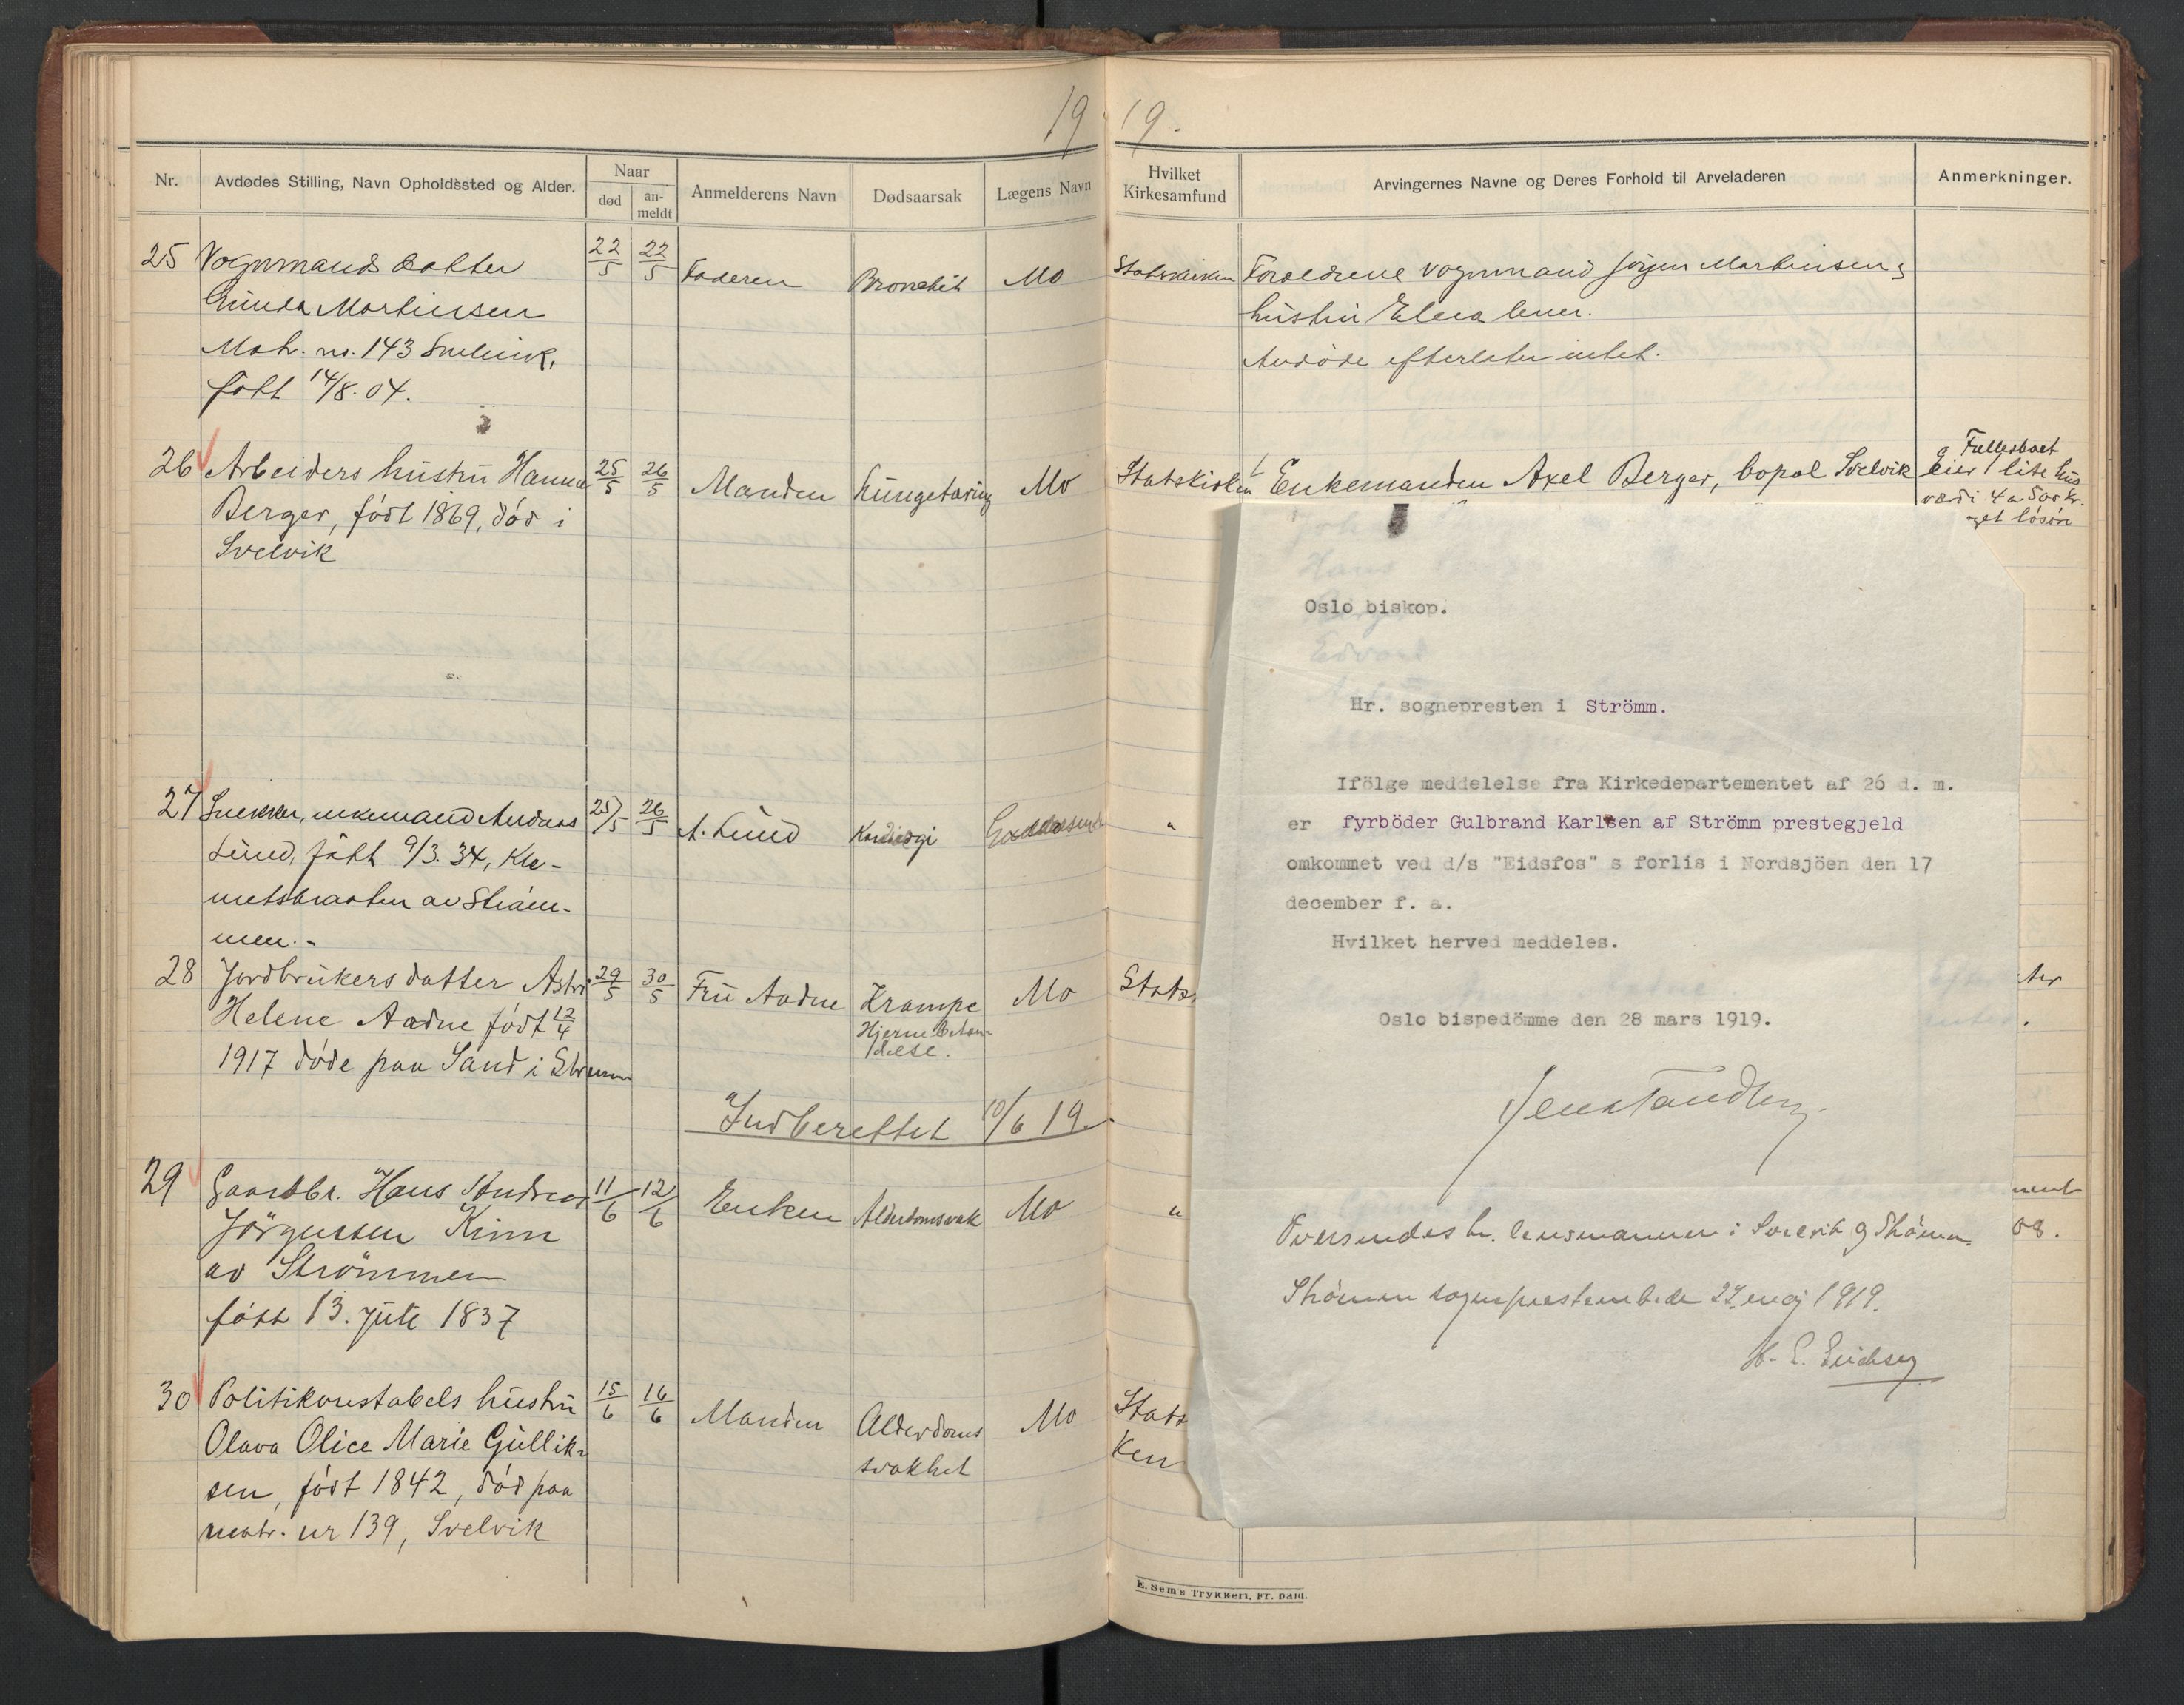 19 19.
Nr. Avdødes Stilling, Navn Opholdssted og Alder. Naar død anmeldt Anmelderens Navn Dødsaarsak Lægens Navn Hvilket Kirkesamfund Arvingernes Navne og Deres Forhold til Arveladeren Anmerkninger.
25 Vognmands datter 22/5 22/5 Faderen Bronchit Mo Statskirken Forældrene vognmand Jørgen Martinsen &
Gunda Martinsen hustru
Matr. no. 143 Svelvik, Avdøde efterlater intet.
født 14/8. 04.
26 Arbeiders hustru Hanna 25/5 26/5 Manden Lungetæring Mo Statskirken Enkemanden Axel Berger, bopæl Svelvik Fællesboet
Berger, født 1869, død i eier 1 lite hus
Svelvik værdi 4 a 500 kr.
løsøre
27 Snekker, enkemand Andreas 25/5 26/5 A. Lund "
Lund, født 9/3. 34, Kle-
metsbraaten av Strøm-
men.-
28 Jordbrukers datter Astri 29/5 30/5 Fru Aadne Krampe Mo Stats
Helene Aadne født 12/4 Hjernebetæn-
delse.
1917 døde paa Sand i Strømm
Indberettet 10/6 19.
29 Gaardbr. Hans Andreas 11/6 12/6 Enken Alderdomsvak Mo "
Jörgensen Kinn
av Strömmen
født 13. Juli 1837
30 Politikonstabels hustru 15/6 16/6 Manden Alderdoms Mo Stats
Olava Olice Marie Gullik- svakhet ken
sen, født 1842, død paa
matr. nr 139, Svelvik
Oslo biskop.
Hr. sognepresten i Strömm.
Ifölge meddelelse fra Kirkedepartementet af 26 d. m.
er fyrböder Gulbrand Karlsen af Strömm prestegjeld
omkommet ved d/s "Eidsfos" s forlis i Nordsjöen den 17
december f. a.
Hvilket herved meddeles.
Oslo bispedömme den 28 mars 1919.
Jens Tandberg
Oversendes hr. lensmannen i Svelvik og Strömm.
Strömm sogneprestembede 27 maj 1919.
H. E. Erichsen
E. Sem's Trykkeri, Fr. hald.